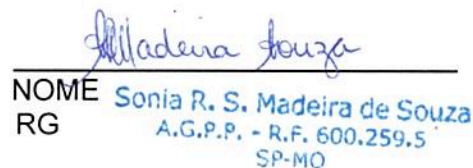 Madeira Souza
NOME Sonia R. S. Madeira de Souza
RG A.G.P.P. - R.F. 600.259.5
SP-MO